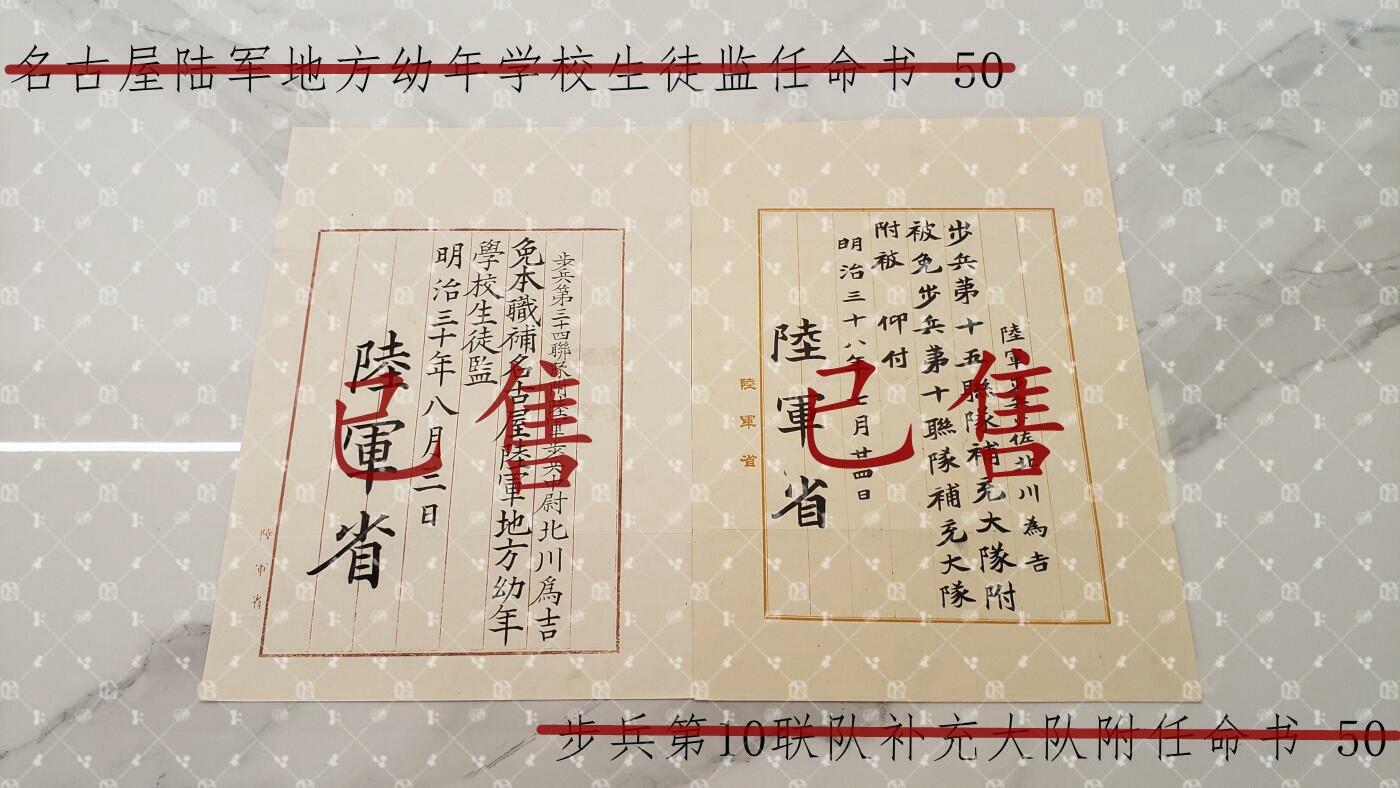 名古屋陆军地方幼年学校生徒监任命书 50
陸軍
佐北川為吉
步兵第十五聯隊補充大隊附
被免步兵第十聯隊補充大隊
附被仰付
明治三十八年七月廿四日
陸軍省
陸軍省
步兵第三十四聯隊附陸軍步兵中尉北川爲吉
免本職補名古屋陸軍地方幼年
學校生徒監
明治三十年八月二日
陸軍省
陸軍省
已售
已售
步兵第10联队补充大队附任命书 50